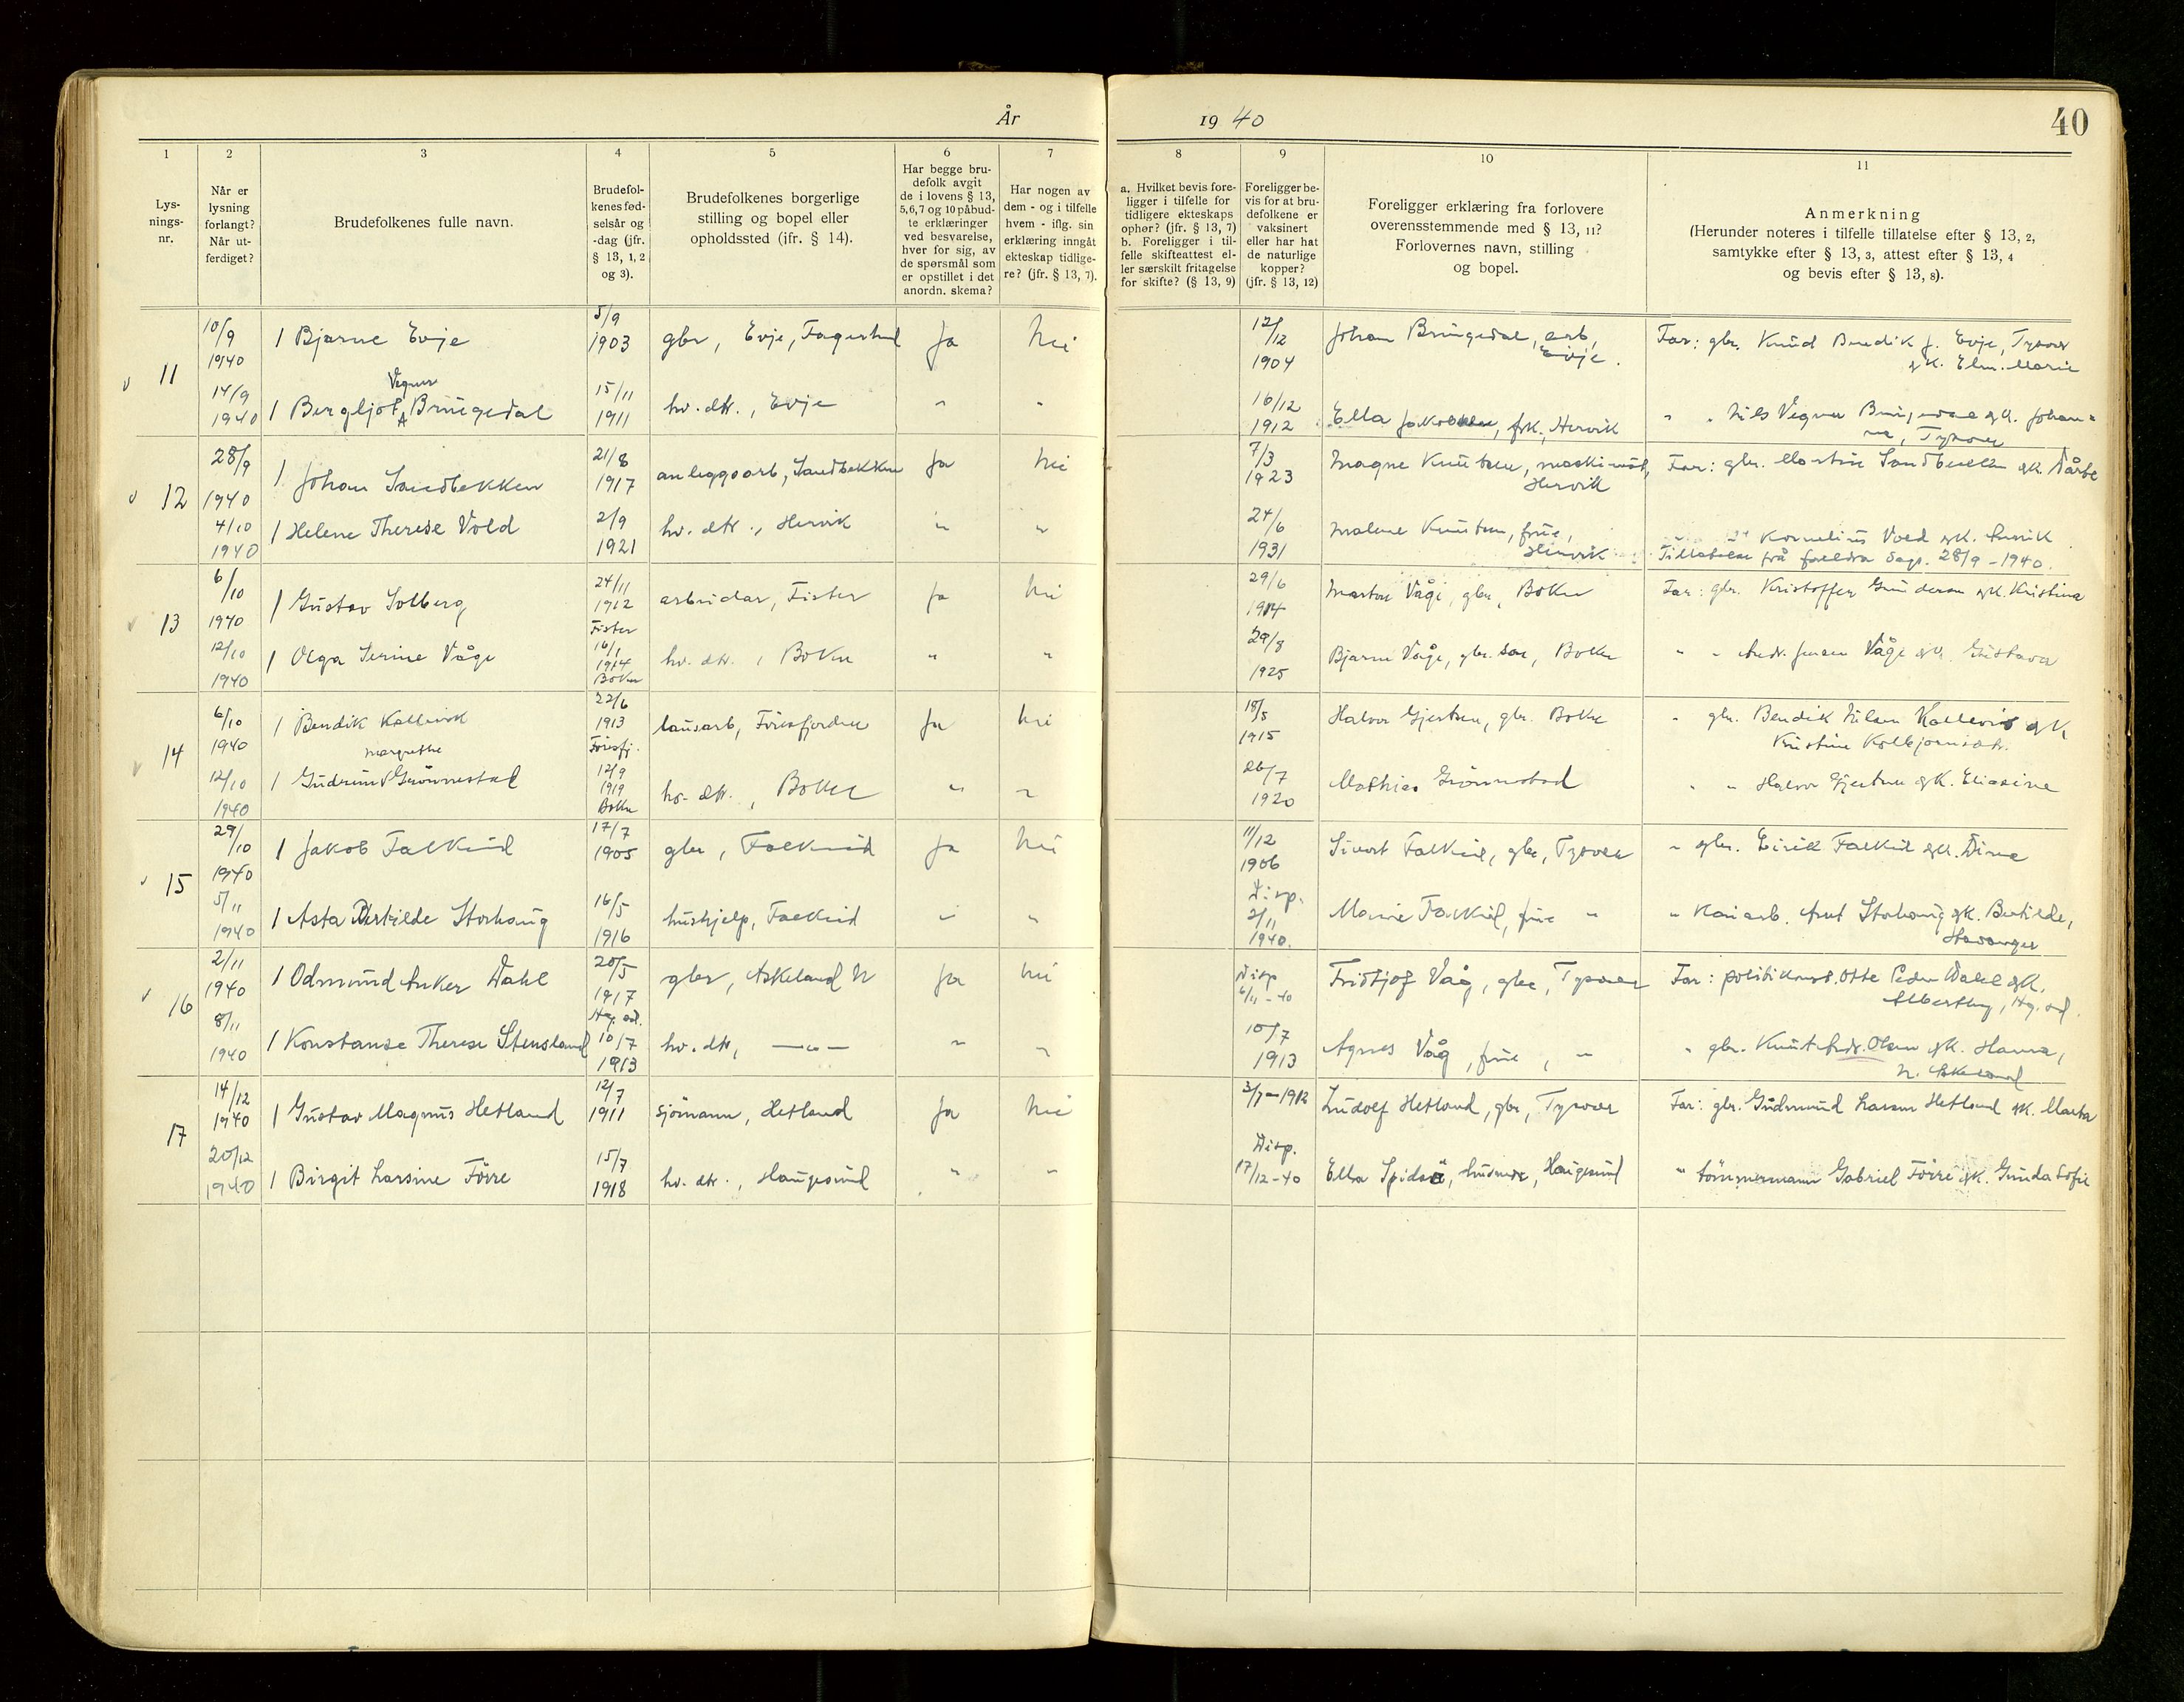 År 1940
40
1 2 3 4 5 6 7 8 9 10 11
Lys-
nings-
nr.
Når er
lysning
forlangt?
Når ut-
ferdiget?
Brudefolkenes fulle navn.
Brudefol-
kenes fød-
selsår og
-dag (jfr.
§ 13, 1, 2
og 3).
Brudefolkenes borgerlige
stilling og bopel eller
opholdssted (jfr. § 14).
Har begge bru-
defolk avgit
de i lovens § 13,
5,6,7 og 10 påbud-
te erklæringer
ved besvarelse,
hver for sig, av
de spørsmål som
er opstillet i det
anordn. skema?
Har nogen av
dem - og i tilfelle
hvem - iflg. sin
erklæring inngåt
ekteskap tidlige-
re? (jfr. § 13, 7).
a. Hvilket bevis fore-
ligger i tilfelle for
tidligere ekteskaps
ophør? (jfr. § 13, 7)
b. Foreligger i til-
felle skifteattest el-
ler særskilt fritagelse
for skifte? (§ 13, 9)
Foreligger be-
vis for at bru-
defolkene er
vaksinert
eller har hat
de naturlige
kopper?
(jfr. § 13, 12)
Foreligger erklæring fra forlovere
overensstemmende med § 13, 11?
Forlovernes navn, stilling
og bopel.
Anmerkning
(Herunder noteres i tilfelle tillatelse efter § 13, 2,
samtykke efter § 13, 3, attest efter § 13, 4
og bevis efter § 13, 8).
11
10/9
1940
1 Bjarne Evje
5/9
1903
gbr, Evje,
Ja
Nei
12/12
1904
Johan Bringedal, arb,
Evje.
Far: gbr. Knud Bendik J. Evje, Tysvær
14/9
1940
Vegner
1 Bergljot Bringedal
15/11
1911
hv. dtr., Evje
"
"
16/12
1912
Ella Jakobsen, frk., Hervik
" " Nils Vegner Bringedal gk. Johan-
ne, Tysvær
12
28/9
1940
1 Johan Sandbekken
21/8
1917
anleggsarb, Sandbekken
Ja
Nei
7/3
1923
Magne Knutsen, maskinist,
Hervik
Far: gbr. Martin Sandbekken gk.
4/10
1940
1 Helene Therese Vold
2/9
1921
hv. dtr., Hervik
"
"
24/6
1931
Malene Knutsen, frue,
Hervik
Kornelius Vold gk.
Tillatelse frå foreldra dags. 28/9 - 1940.
13
6/10
1940
1 Gustav Solberg
24/11
1912
Fister
arbeidar, Fister
Ja
Nei
29/6
1914
Marton Våge, gbr, Bokn
Far: gbr. Kristoffer Gunderson gk. Kristina
12/10
1940
1 Olga Serine Våge
16/1
1914
Bokn
hv. dtr., Bokn
"
"
29/8
1925
Bjarne Våge, gbr. son, Bokn
" " Andr. Jensen Våge gk. Gustava
14
6/10
1940
1 Bendik Kallevik
22/6
1913
Føresfj.
lausarb, Føresfjorden
Ja
Nei
18/5
1915
Halvor Gjertsen, gbr. Bokn
" gbr. Bendik Nilsen Kallevik gk
Kristine Kolbjørnsdtr.
12/10
1940
Margrethe
1 Gudrun Grønnestad
12/9
1919
Bokn
hv. dtr., Bokn
"
"
26/7
1920
Mathias Grønnestad
" " Halvor Gjertsen gk. Eliasine
15
29/10
1940
1 Jakob Falkeid
17/7
1905
gbr, Falkeid
Ja
Nei
11/12
1906
Sivert Falkeid, gbr, Tysvær
" gbr. Eirik Falkeid gk. Dina
5/11
1940
1 Asta Bertilde Storhaug
16/5
1916
hushjelp, Falkeid
"
"
Disp.
2/11
1940.
Marie Falkeid, frue "
" Kaiarb. Anut Storhaug gk. Bertilde,
Stavanger
16
2/11
1940
1 Odmund Anker Dahl
20/5
1917
Hg. sd.
gbr, Askeland N
Ja
Nei
Disp
6/11 - 40
Fridtjof Våg, gbr, Tysvær
Far: politikonst. Otto Peder Dahl gk.
8/11
1940
1 Konstanse Therese Stensland
10/7
1913
hv. dtr, —"—
"
"
10/7
1913
Agnes Våg, frue, "
" gbr. Knut Andr. Olsen gk. Hanna,
N. Askeland
17
14/12
1940
1 Gustav Magnus Hetland
12/7
1911
sjømann, Hetland
Ja
Nei
3/7 - 1912
Ludolf Hetland, gbr, Tysvær
Far: gbr. Gudmund Larsen Hetland gk. Marta
20/12
1940
1 Birgit Larsine Førre
15/7
1918
hv. dtr., Haugesund
"
"
Disp.
17/12 - 40
Ella Spidsø, husmor, Haugesund
" tømmermann Gabriel Førre gk. Gunda Sofie